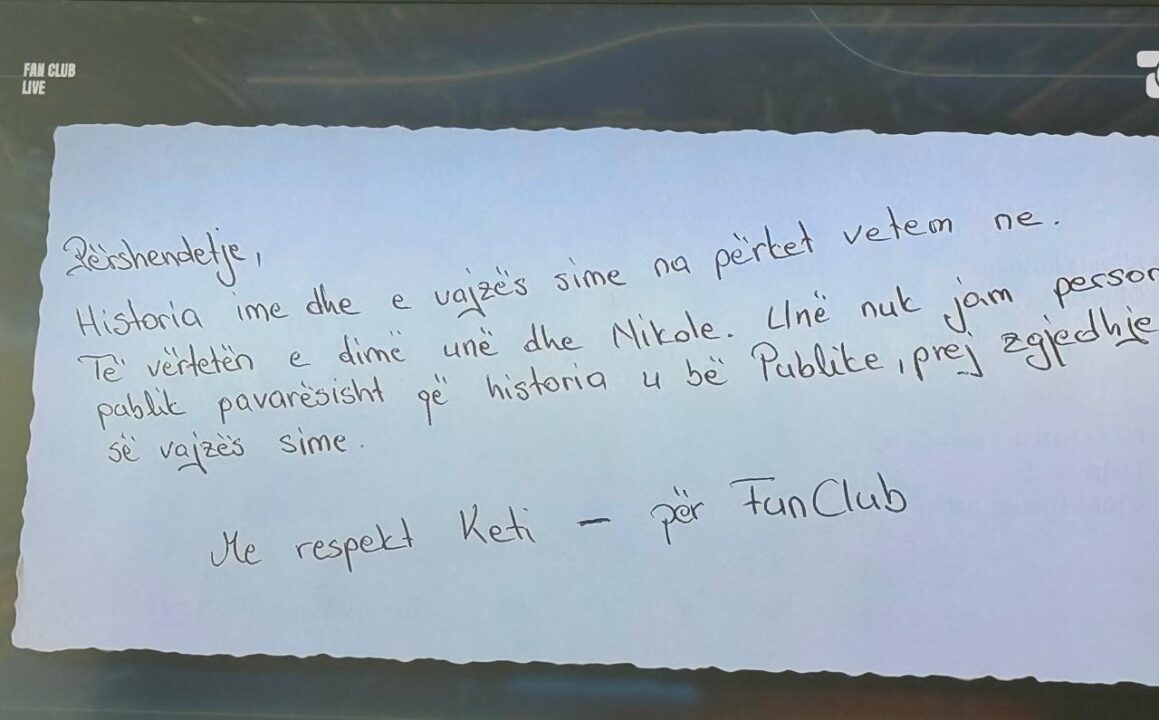 FAN CLUB
LIVE
Përshendetje,
Historia ime dhe e vajzës sime na përket vetem ne.
Të vërtetën e dimë unë dhe Nikole. Unë nuk jam person
pablik pavarësisht që historia u bë Publike, prej zgjedhje
së vajzës sime.
Me respekt Keti – për FunClub